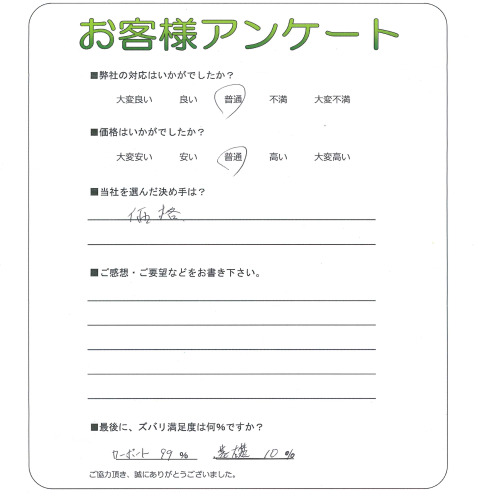 お客様アンケート
■弊社の対応はいかがでしたか？
大変良い 良い 普通 不満 大変不満
■価格はいかがでしたか？
大変安い 安い 普通 高い 大変高い
■当社を選んだ決め手は？
価格
■ご感想・ご要望などをお書き下さい。
■最後に、ズバリ満足度は何%ですか？
カーポート 99 % 基礎 10 %
ご協力頂き、誠にありがとうございました。